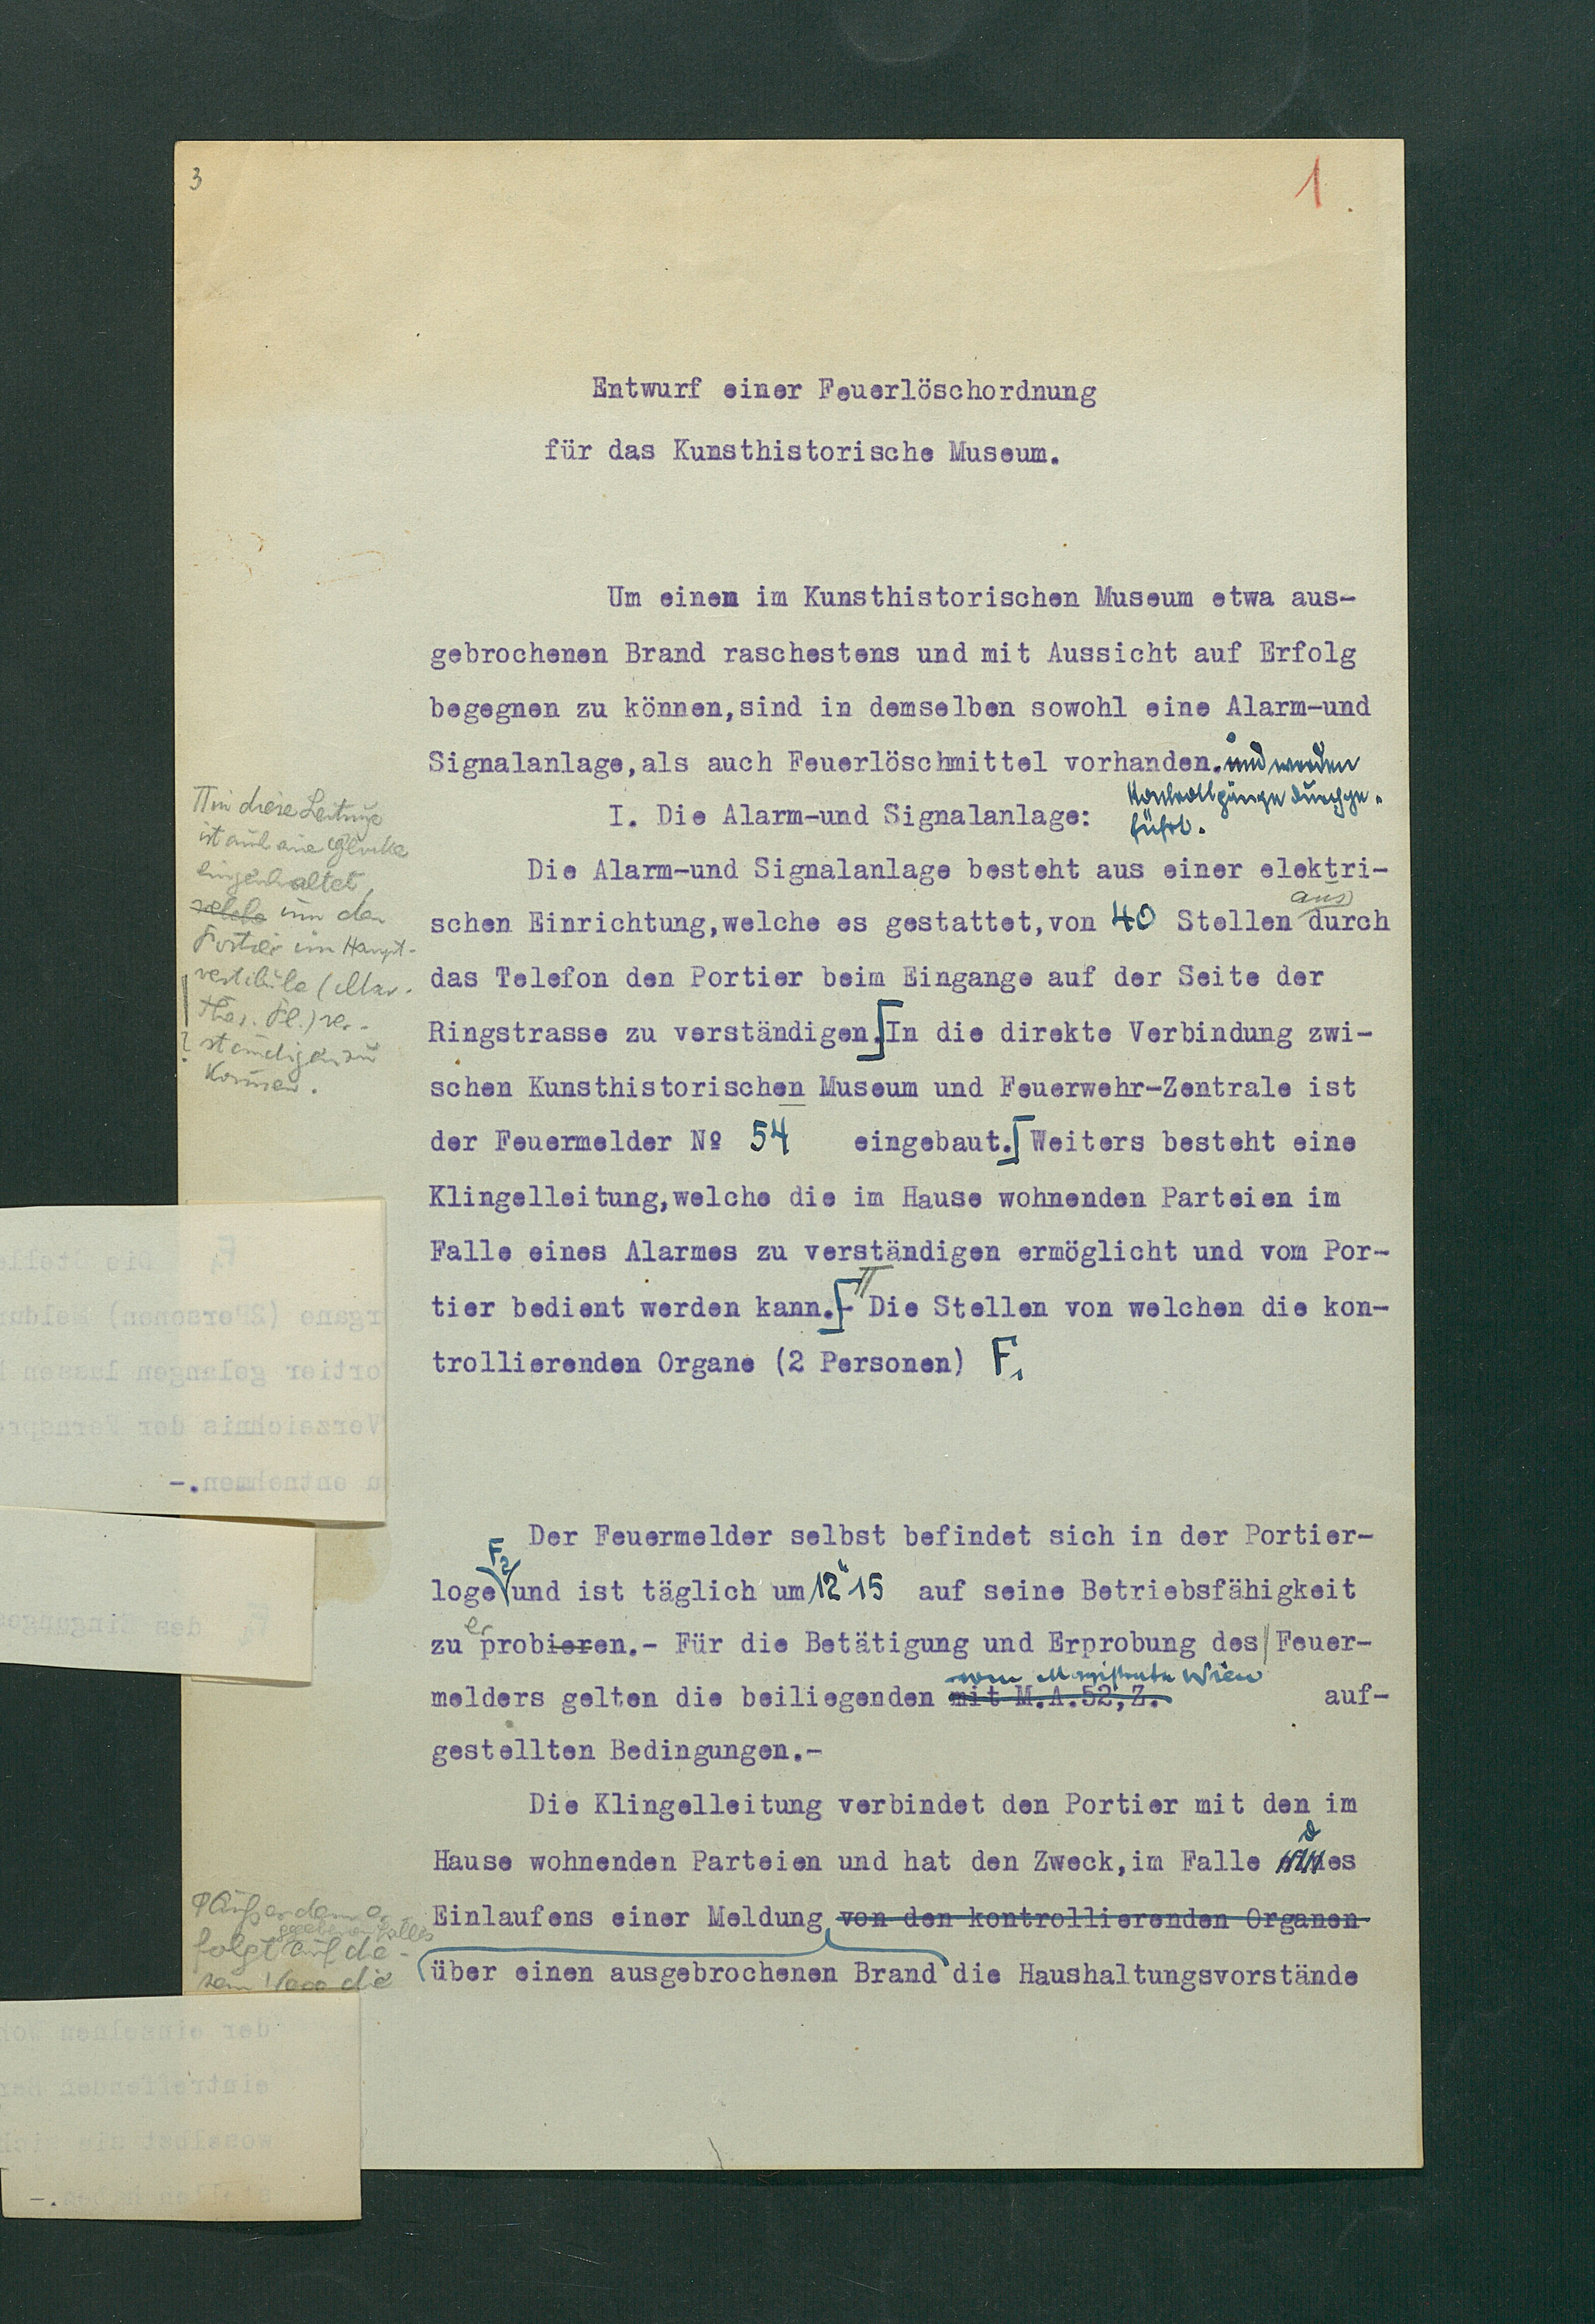 3
1.
Entwurf einer Feuerlöschordnung
für das Kunsthistorische Museum.
Um einen im Kunsthistorischen Museum etwa aus-
gebrochenen Brand raschestens und mit Aussicht auf Erfolg
begegnen zu können,sind in demselben sowohl eine Alarm-und
Signalanlage,als auch Feuerlöschmittel vorhanden. und werden
Kontrollgänge durchge-
führt.
I. Die Alarm-und Signalanlage:
Die Alarm-und Signalanlage besteht aus einer elektri-
aus
schen Einrichtung,welche es gestattet,von 40 Stellen durch
das Telefon den Portier beim Eingange auf der Seite der
Ringstrasse zu verständigen. In die direkte Verbindung zwi-
schen Kunsthistorischen Museum und Feuerwehr-Zentrale ist
der Feuermelder № 54 eingebaut. Weiters besteht eine
Klingelleitung,welche die im Hause wohnenden Parteien im
Falle eines Alarmes zu verständigen ermöglicht und vom Por-
tier bedient werden kann.- Die Stellen von welchen die kon-
trollierenden Organe (2 Personen) F1
Π in diese Leitung
ist auch eine Glocke
eingeschaltet,
welche um den
Portier im Haupt-
vestibüle (Mar.
Ther. Pl.) ver-
ständigen zu
können.
Der Feuermelder selbst befindet sich in der Portier-
F2
loge und ist täglich um 12h 15 auf seine Betriebsfähigkeit
er
zu probieren.- Für die Betätigung und Erprobung des Feuer-
vom Magistrate Wien
melders gelten die beiliegenden mit M.A.52,Z. auf-
gestellten Bedingungen.-
Die Klingelleitung verbindet den Portier mit den im
d
Hause wohnenden Parteien und hat den Zweck,im Falle es
Einlaufens einer Meldung von den kontrollierenden Organen
über einen ausgebrochenen Brand die Haushaltungsvorstände
Außerdem er-
gegebenenfalls
folgt auf die-
sem Wege die